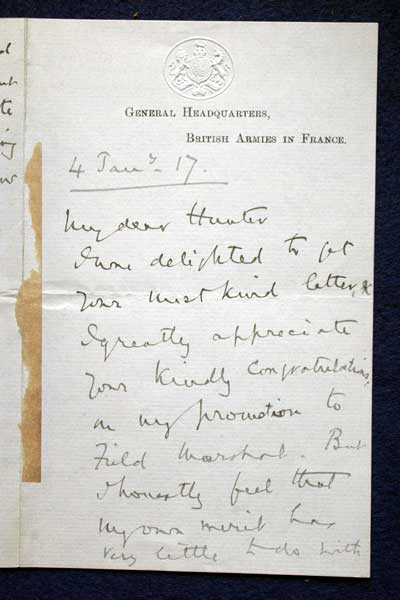 GENERAL HEADQUARTERS,
BRITISH ARMIES IN FRANCE.
4 Jany. 17.
My dear Hunter
I was delighted to get
your most kind letter, &
I greatly appreciate
your kindly congratulations,
on my promotion to
Field Marshal. But
I honestly feel that
my own merit has
very little to do with